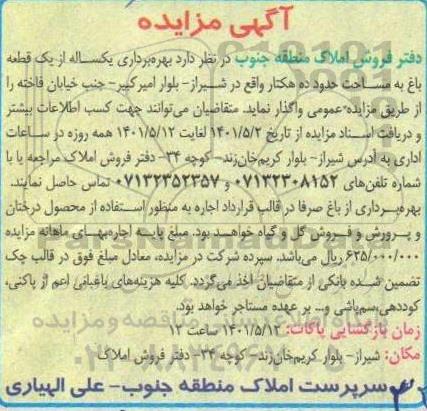 آگهی مزایده
دفتر فروش املاک منطقه جنوب در نظر دارد بهره‌برداری یکساله از یک قطعه
باغ به مساحت حدود ده هکتار واقع در شیراز- بلوار امیرکبیر- جنب خیابان فاخته را
از طریق مزایده عمومی واگذار نماید. متقاضیان می‌توانند جهت کسب اطلاعات بیشتر
و دریافت اسناد مزایده از تاریخ ۱۴۰۱/۵/۲ لغایت ۱۴۰۱/۵/۱۲ همه روزه در ساعات
اداری به آدرس شیراز- بلوار کریم‌خان‌زند- کوچه ۳۴- دفتر فروش املاک مراجعه یا با
شماره تلفن‌های ۰۷۱۳۲۳۰۸۱۵۲ و ۰۷۱۳۲۳۵۲۳۵۷ تماس حاصل نمایند.
بهره‌برداری از باغ صرفا در قالب قرارداد اجاره به منظور استفاده از محصول درختان
و پرورش و فروش گل و گیاه خواهد بود. مبلغ پایه اجاره‌بهای ماهانه مزایده
۶۲۵/۰۰۰/۰۰۰ ریال می‌باشد. سپرده شرکت در مزایده، معادل مبلغ فوق در قالب چک
تضمین شده بانکی از متقاضیان اخذ می‌گردد. کلیه هزینه‌های باغبانی اعم از پاکنی،
کوددهی، سم‌پاشی و... بر عهده مستاجر خواهد بود.
زمان بازگشایی پاکات: ۱۴۰۱/۵/۱۲ ساعت ۱۲
مکان: شیراز- بلوار کریم‌خان‌زند- کوچه ۳۴- دفتر فروش املاک
سرپرست املاک منطقه جنوب- علی الهیاری